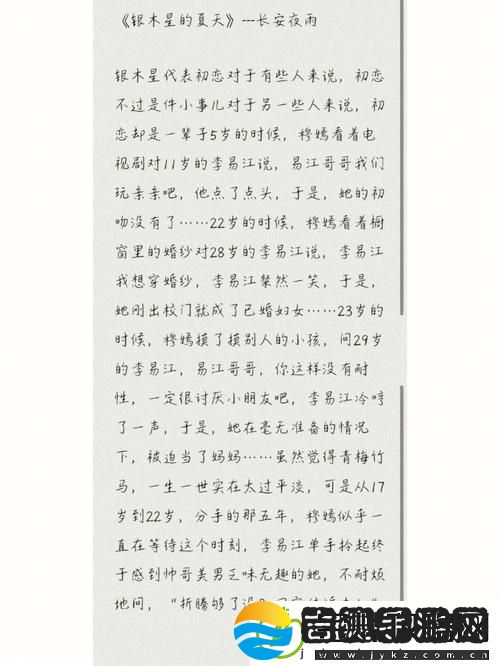 《银木星的夏天》---长安夜雨
银木星代表初恋对于有些人来说，初恋
不过是件小事儿对于另一些人来说，初
恋却是一辈子5岁的时候，穆嫣看着电
视剧对11岁的李易江说，易江哥哥我们
玩亲亲吧，他点了点头，于是，她的初
吻没有了……22岁的时候，穆嫣看着橱
窗里的婚纱对28岁的李易江说，李易江
我想穿婚纱，李易江粲然一笑，于是，
她刚出校门就成了已婚妇女……23岁的
时候，穆嫣摸了摸别人的小孩，问29岁
的李易江，易江哥哥，你这样没有耐
性，一定很讨厌小朋友吧，李易江冷哼
了一声，于是，她在毫无准备的情况
下，被迫当了妈妈……虽然觉得青梅竹
马，一生一世实在太过平淡，可是从17
岁到22岁，分手的那五年，穆嫣似乎一
直在等待这个时刻，李易江单手拎起终
于感到帅哥美男乏味无趣的她，不耐烦
地问，“折腾够了没？
www.jykz.com.cn